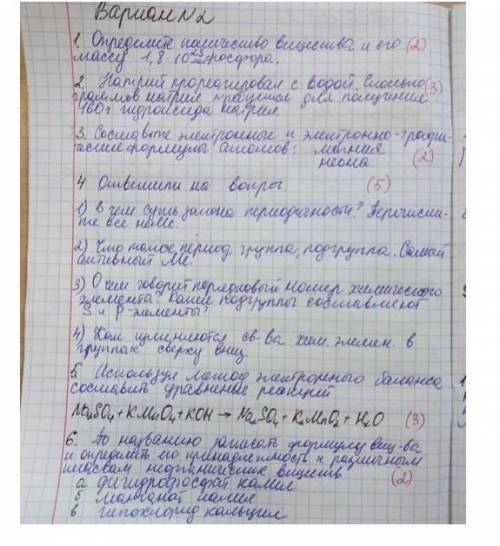 Вариант №2
1. Определите количество вещества и его (2)
массу 1,8 · 10 фосфора.
2. Натрий прореагировал с водой. Сколько (3)
граммов натрия для получения
160 г гидроксида натрия
3. Составьте электронные и электронно-графи-
ческие формулы атомов: магния
неона (2)
4 Ответили на вопрос (5)
1) В чем суть закона периодичности? Перечисли-
те все неМе.
2) Что такое период, группа, подгруппа. Самый
активный Ме.
3) О чем говорит порядковый номер химического
элемента? Какие подгруппы составляют
S и p-элементы?
4) Как изменяются св-ва хим. элемен. в
группах сверху вниз.
5. Используя метод электронного баланса
составить уравнение реакций
Na2SO3 + KMnO4 + KOH → Na2SO4 + K2MnO4 + H2O (3)
6. По названию записать формулу вещ-ва
и определить его принадлежность к различным
классам неорганических веществ (2)
а дигидрофосфат калия
б манганат калия
в гипохлорид кальция